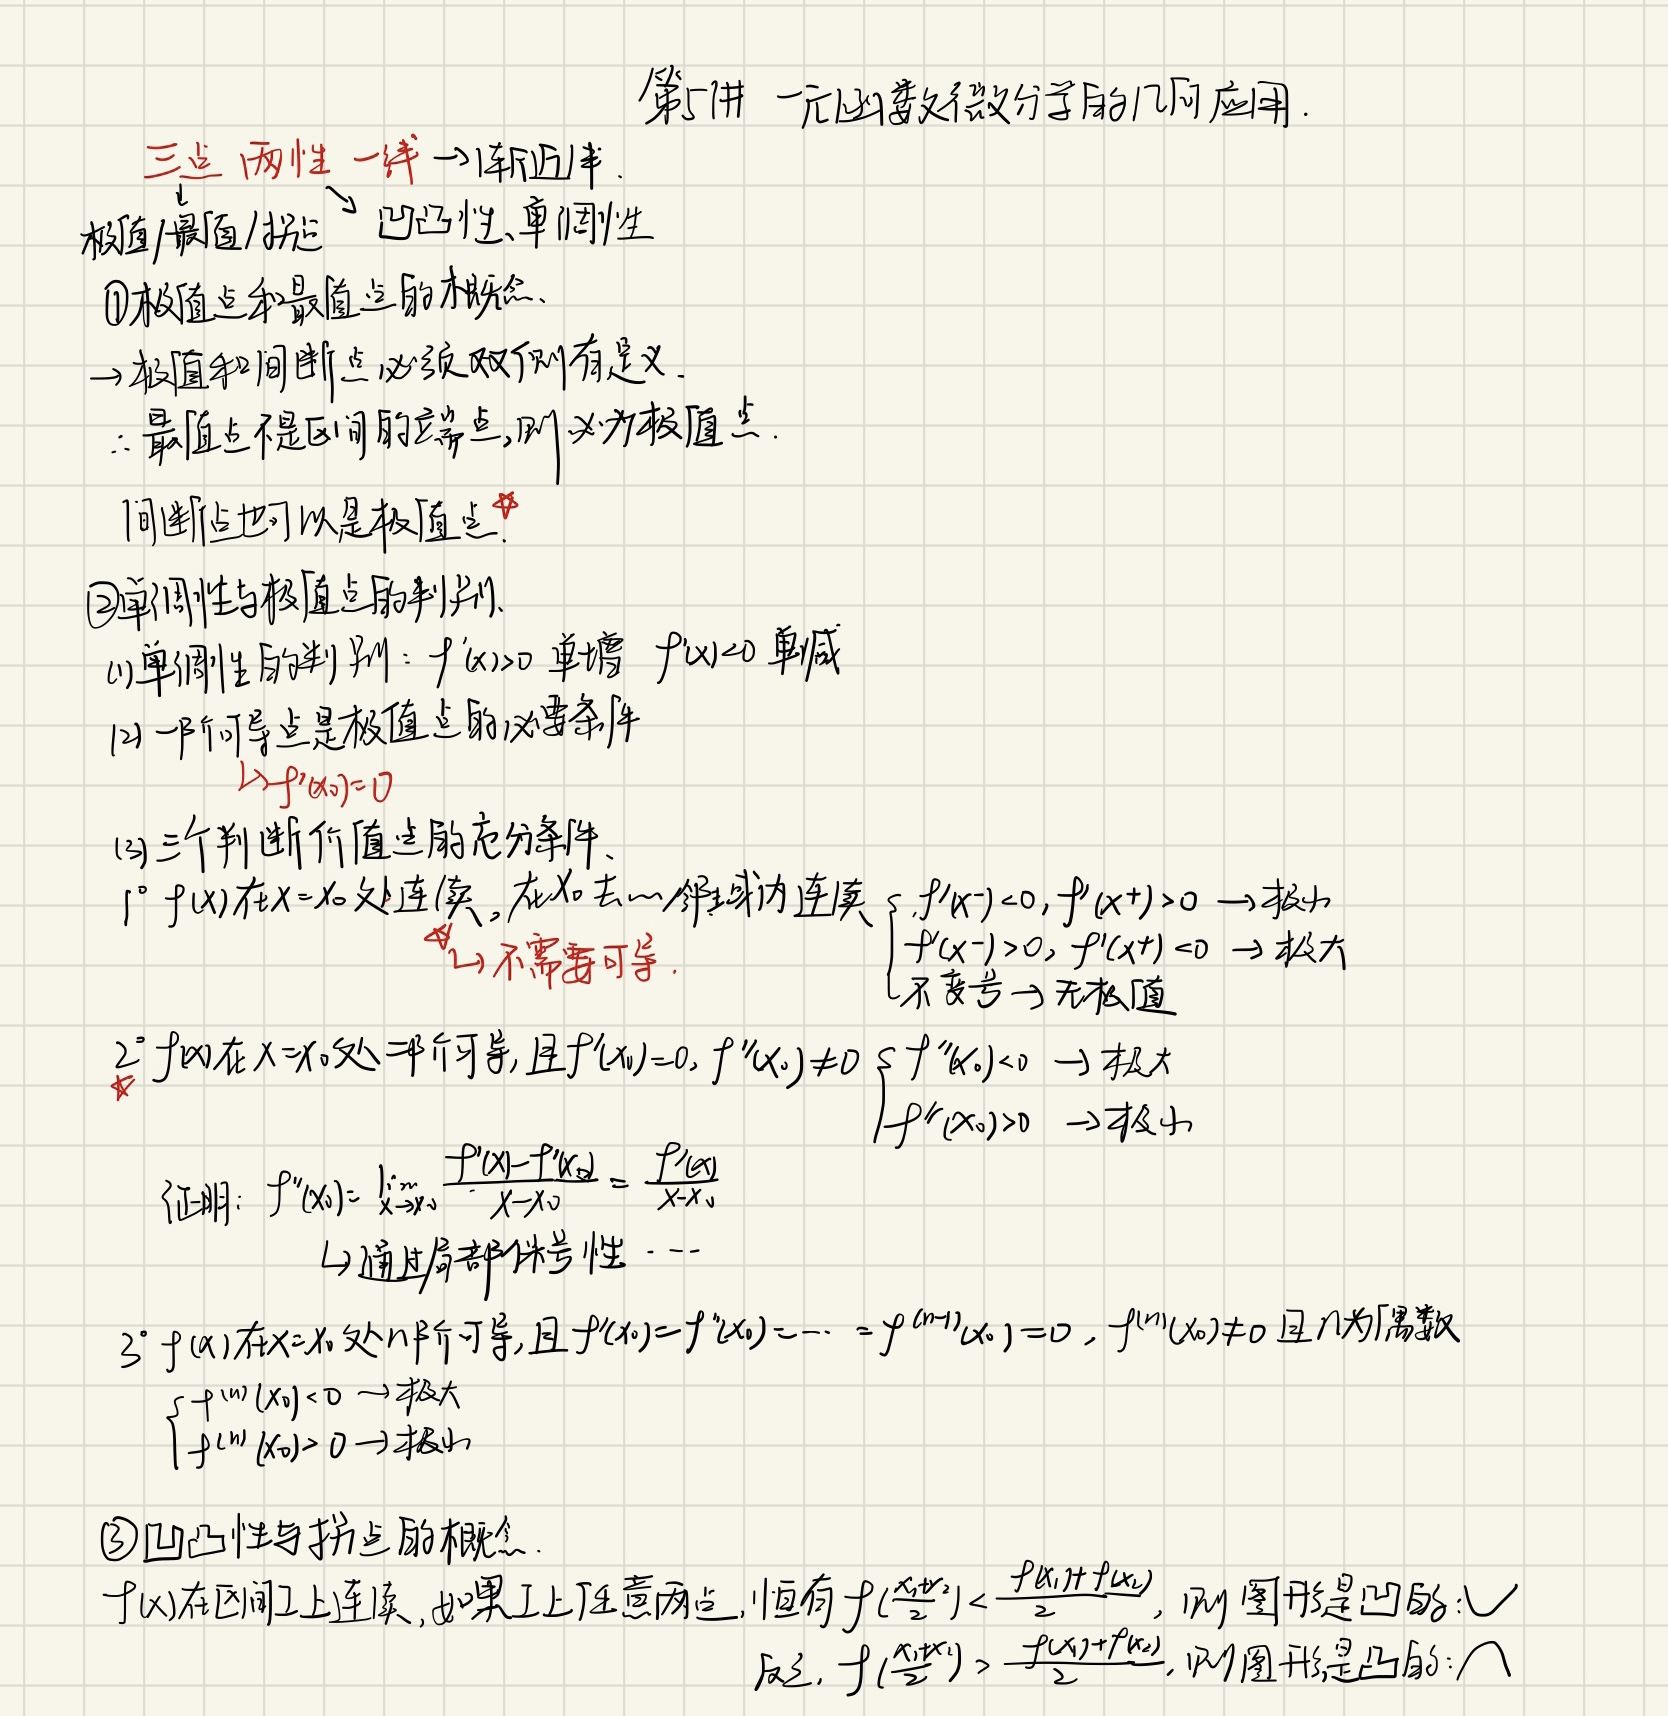 第5讲 一元函数微分学的几何应用.
三点 两性 一线 → 渐近线.
↓ ↘
极值/最值/拐点 凹凸性、单调性
①极值点和最值点的概念、
→极值和间断点必须双侧有定义.
∴最值点不是区间的端点,则必为极值点.
间断点也可以是极值点.☆
②单调性与极值点的判别、
(1)单调性的判别: f'(x)>0 单增 f'(x)<0 单减
(2) 一阶可导点是极值点的必要条件
↳f'(x₀)=0
(3)三个判断价值点的充分条件、
1° f(x)在x=x₀处连续,在x₀去~邻域内连续 { f'(x-)<0, f'(x+)>0 → 极小
f'(x-)>0, f'(x+)<0 → 极大
不变号→无极值
☆↳不需要可导.
2° f(x)在x=x₀处二阶可导,且f'(x₀)=0, f''(x₀)≠0 { f''(x₀)<0 → 极大
☆ f''(x₀)>0 → 极小
证明: f''(x₀)= lim x→x₀ (f'(x)-f'(x₀))/(x-x₀) = f'(x)/(x-x₀)
↳通过局部保号性 ····
3° f(x)在x=x₀处n阶可导,且f'(x₀)=f''(x₀)=··· =f⁽ⁿ⁻¹⁾(x₀)=0, f⁽ⁿ⁾(x₀)≠0且n为偶数
{ f⁽ⁿ⁾(x₀)<0 →极大
f⁽ⁿ⁾(x₀)>0 →极小
③凹凸性与拐点的概念.
f(x)在区间I上连续,如果I上任意两点,恒有 f((x₁+x₂)/2) < (f(x₁)+f(x₂))/2, 则图形是凹的:
反之, f((x₁+x₂)/2) > (f(x₁)+f(x₂))/2, 则图形是凸的: